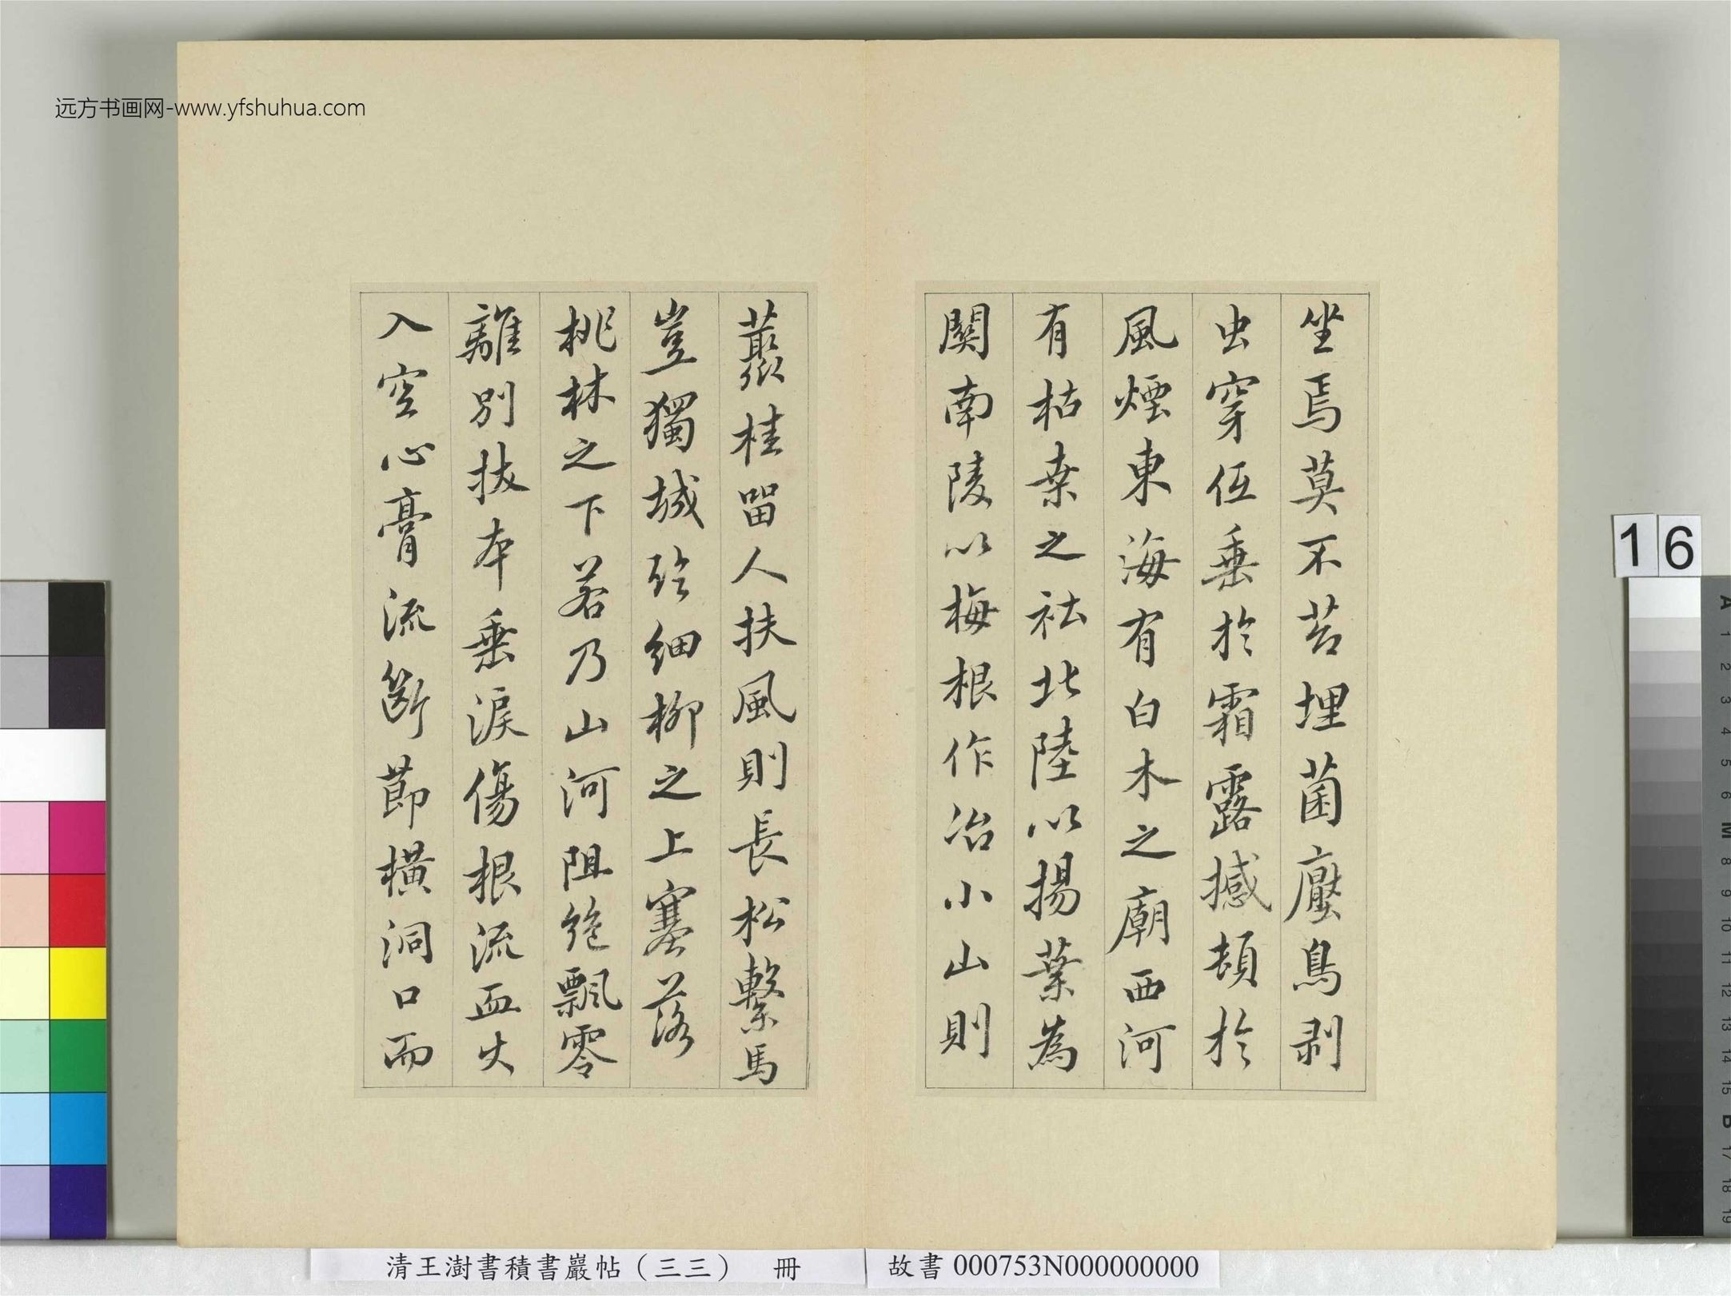 远方书画网-www.yfshuhua.com
坐焉莫不苔埋菌壓鳥剥
虫穿低垂於霜露撼頓於
風煙東海有白木之廟西河
有枯桒之社北陸以揚葉為
關南陵以梅根作冶小山則
藂桂留人扶風則長松繫馬
豈獨城臨細柳之上塞落
桃林之下若乃山河阻絶飄零
離別拔本垂淚傷根流血火
入空心膏流斷節橫洞口而
16
清王澍書積書巖帖（三三） 冊
故書 000753N000000000